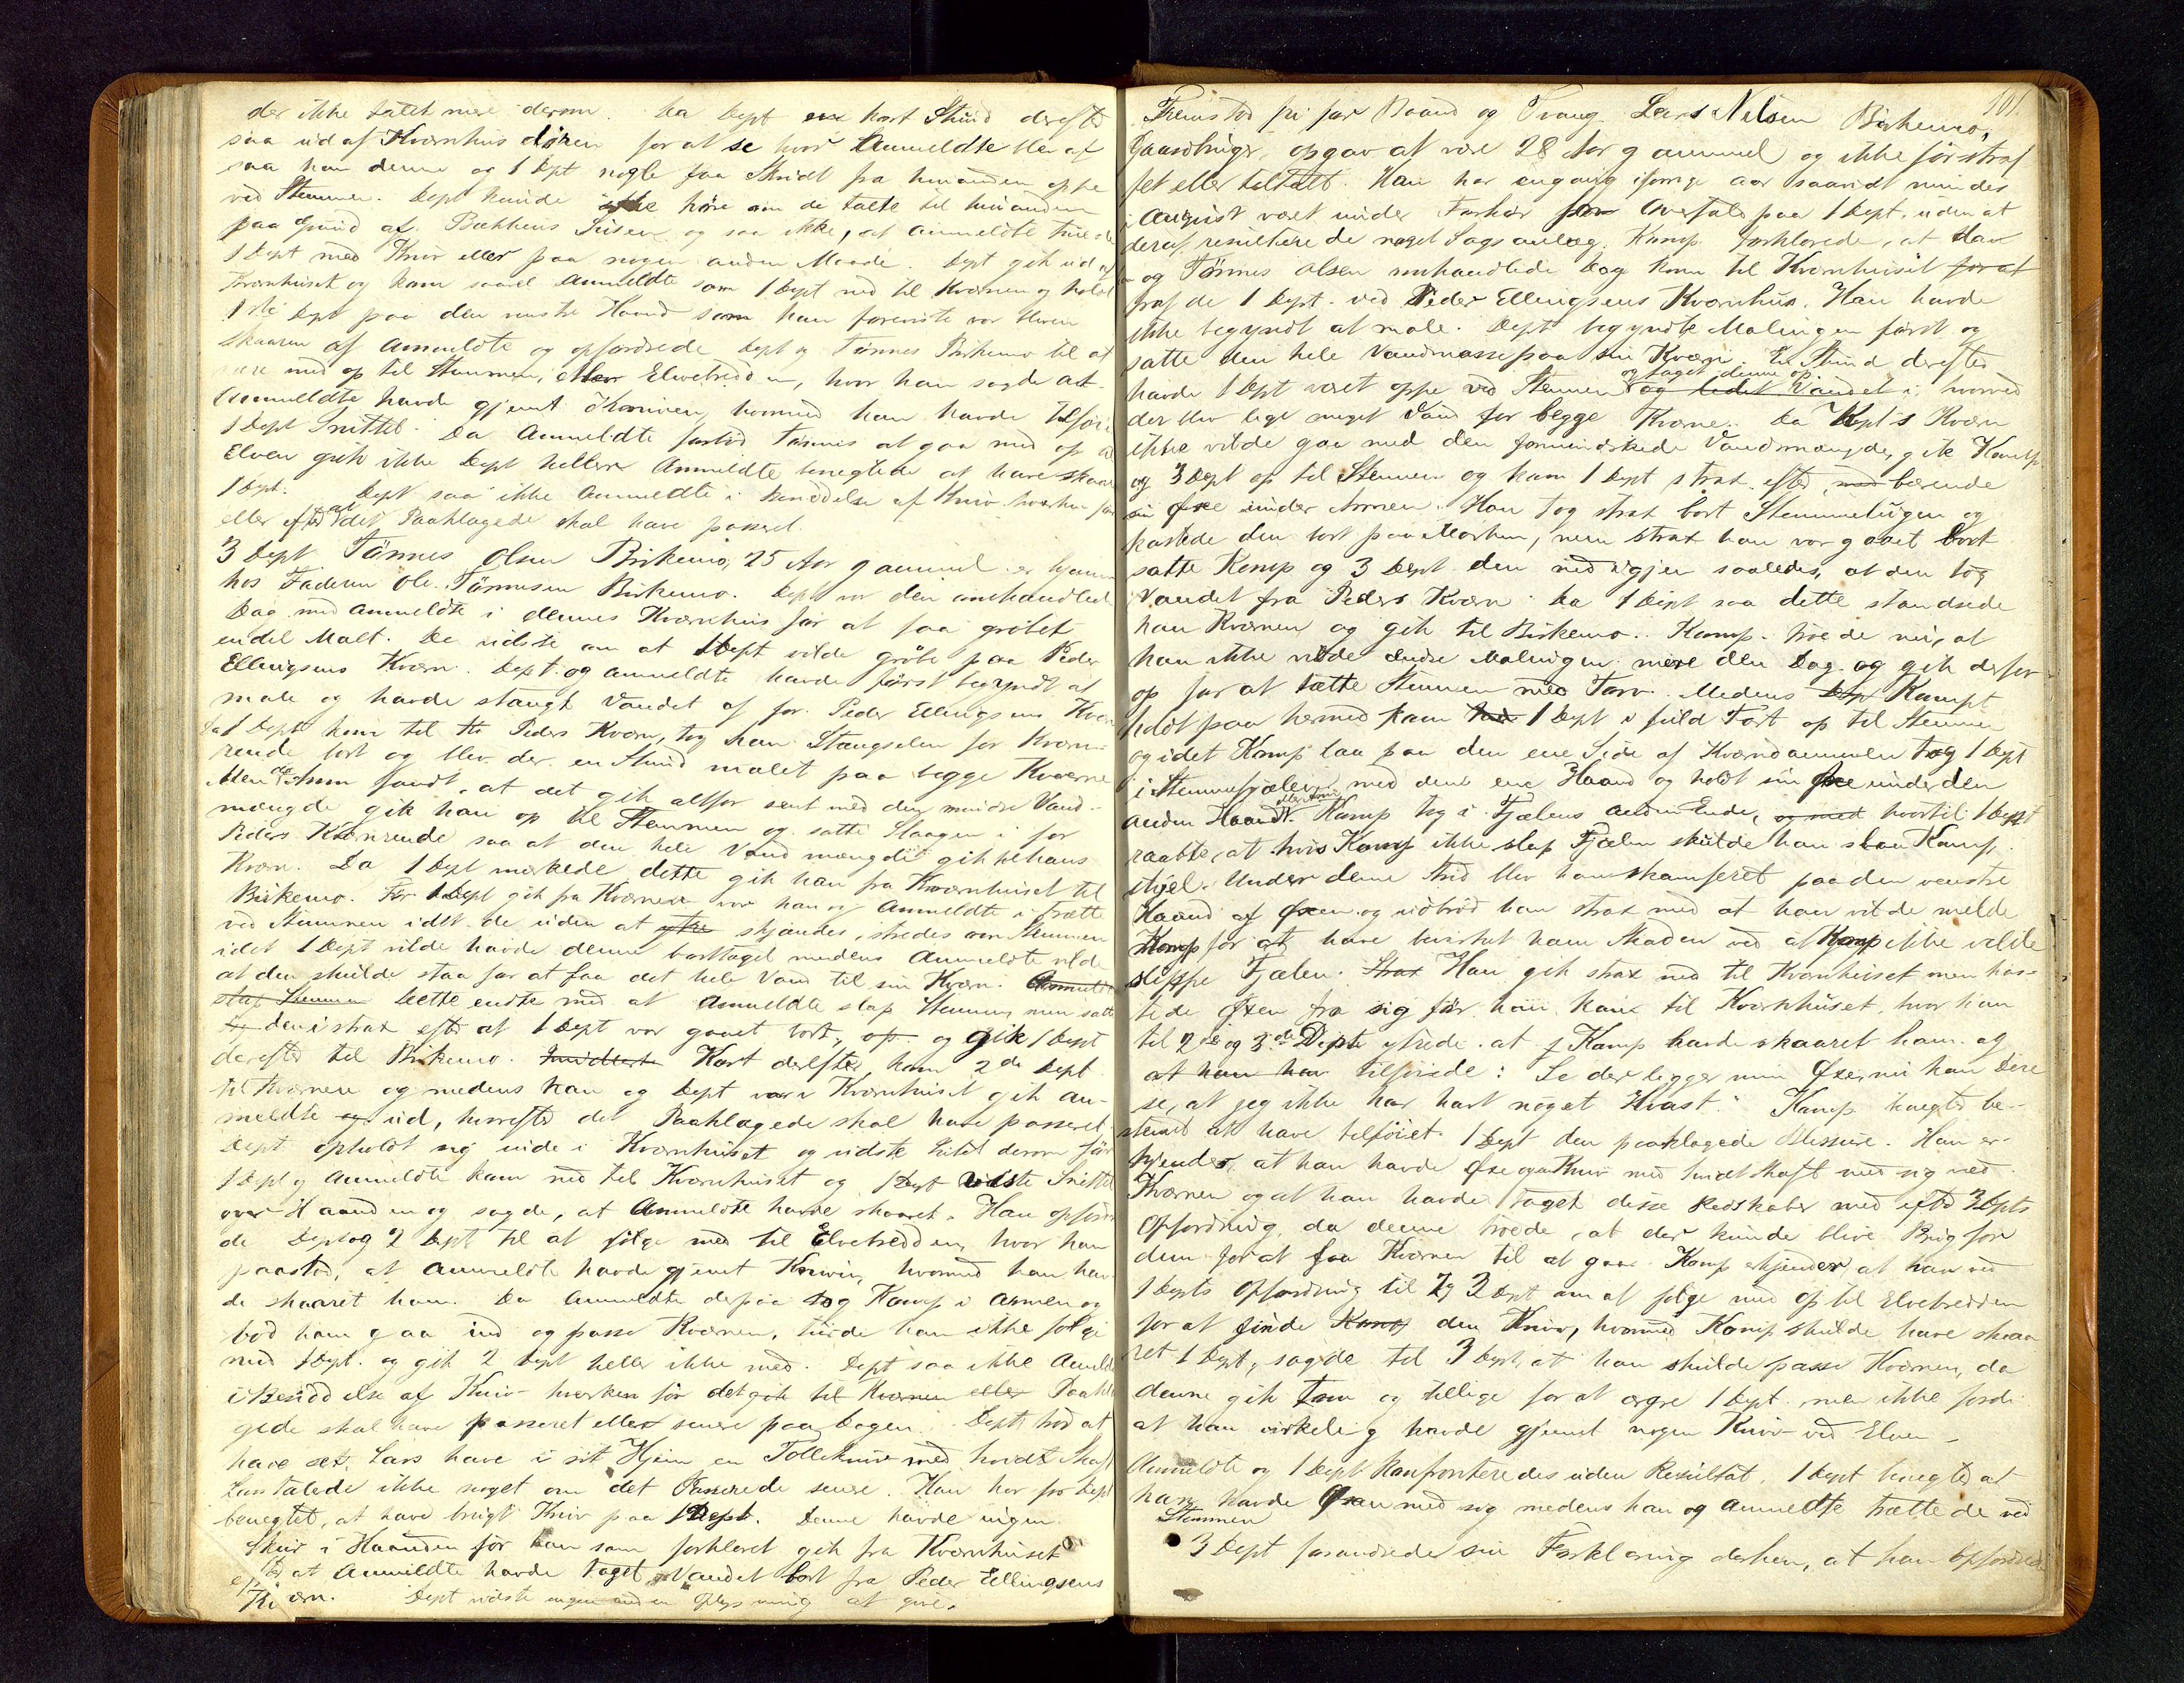 der ikke talet mere derom. Da Dept en kort Stund derefter
saa ud af Kværnhusdören for at se hvor Anmeldte blev af
saa han denne og 1 Dept nogle faa Skridt fra hinanden oppe
ved Stemmen. Dept kunde ikke höre om de talte til hinanden
paa Grund af Bækkens Susen og saa ikke, at Anmeldte truede
1 Dept med Kniv eller paa nogen anden Maade. Dept gik ud af
Kværnhuset og kom saavel Anmeldte som 1 Dept ned til Kværnen og holdt
1ste Dept paa den venstre Haand som han foreviste var bleven
skaaren af Anmeldte og opfordrede Dept og Tönnes Birkemo til at
være med op til Stemmen, eller Elvebredden, hvor han sagde at
Anmeldte havde gjemt Kniven, hvormed han havde tilföiet
1 Dept Snittet. Da Anmeldte forböd Tönnes at gaa med op til
Elven gik ikke Dept heller. Anmeldte benegtede at have skaaret
1 Dept. Dept saa ikke Anmeldte i Besiddelse af Kniv hverken för
eller efter at det Paaklagede skal have passeret.
3 Dept Tönnes Olsen Birkemo, 25 Aar gammel er hjemme
hos Faderen Ole Tönnesen Birkemo. Dept var den omhandlede
Dag med Anmeldte i dennes Kværnhus for at faa gröbet
endel Malt. De vidste om at 1 Dept vilde gröbe paa Peder
Ellingsens Kværn. Dept og Anmeldte havde först begyndt at
male og havde stængt Vandet af for Peder Ellingsens Kværn
Da 1 Dept kom til Peders Kværn, tog han Stængselen for Kværn-
rende bort og blev der en Stund malet paa begge Kværne
Men da han fandt, at det gik altfor sent med den mindre Vand-
mængde gik han op til Stemmen og satte Slaagen i for
Peders Kværnrende saa at den hele Vandmængde gik til hans
Kværn. Da 1 Dept mærkede dette gik han fra Kværnhuset til
Birkemo. För 1 Dept gik fra Kværnen var han og Anmeldte i Trætte
ved Stemmen idet de uden at skjændes, stredes om Stemmen
idet 1 Dept vilde havde denne borttaget medens Anmeldte vilde
at den skulde staa for at faa det hele Vand til sin Kværn. Anmeldte
slap Stemmen Dette endte med at Anmeldte slap Stemmen men satte
den i strax efter at 1 Dept var gaaet bort, og gik 1 Dept
derefter til Birkemo. Imidlertid Kort derefter kom 2de Dept
til Kværnen og medens han og Dept var i Kværnhuset gik An-
meldte ud, hvorefter det Paaklagede skal have passeret.
Dept opholdt sig inde i Kværnhuset og vidste Intet derom för
1 Dept og Anmeldte kom ned til Kværnhuset og 1 Dept viste Snittet
over Haanden og sagde, at Anmeldte havde skaaret. Han opfordre-
de Dept og 2 Dept til at fölge med til Elvebredden, hvor han
paastod, at Anmeldte havde gjemt Kniven, hvormed han hav-
de skaaret ham. Da Anmeldte derpaa tog Komp i Armen og
bad ham gaa ind og passe Kværnen, turde han ikke fölge
med 1 Dept. og gik 2 Dept heller ikke med. Dept saa ikke Anmeldte
i Besiddelse af Kniv hverken för det gik til Kværnen eller Paakla-
gede skal have passeret eller senere paa Dagen. Dept tror at
have set Lars have i sit Hjem en Tolleknive med hvidt Skaft
Lars talede ikke noget om det Passerede senere. Han har for Dept
benegtet, at have brugt Kniv paa 1 Dept. Denne havde ingen
Skur i Haanden för han som forklaret gik fra Kværnhuset
efter at Anmeldte havde taget Vandet bort fra Peder Ellingsens
Kværn. Dept vidste ingen anden Oplysning at give.
101.
Fremstod fri for Baand og Tvang Lars Nilsen Birkemo,
Gaardbruger, opgav at være 28 Aar gammel og ikke för straf
fet eller tiltalt. Han har engang iforrige Aar saavidt mindes
i August været under Forhör for Overfald paa 1 Dept. uden at
deraf resulterede noget Sagsanlæg. Komp. forklarede, at da han
og Tönnes Olsen omhandlede Dag kom til Kværnhuset for at
traf de 1 Dept. ved Peder Ellingsens Kværnhus. Han havde
ikke begyndt at male. Dept begyndte Malingen först og
satte den hele Vandmasse paa sin Kværn. En Stund derefter
havde 1 Dept været oppe ved Stemmen og taget denne op og ledet Vandet i hvorved
der blev lige meget Vand for begge Kværne. Da Dept's Kværn
ikke vilde gaa med den formindskede Vandmængde, gik Komp
og 3 Dept op til Stemmen og kom 1 Dept strax efter med bærende
sin Öxe under Armen. Han tog strax bort Stemmelugen og
kastede den bort paa Marken, men strax han var gaaet bort
satte Komp og 3 Dept den ned igjen saaledes, at den tog
Vandet fra Peders Kværn. Da 1 Dept saa dette standsede
han Kværnen og gik til Birkemo. Komp. troede nu, at
han ikke vilde ændse Malingen mere den Dag og gik derfor
op for at tætte Stemmen med Torv. Medens Dept Komp
holdt paa hermed kom 1 Dept i fuld Fart op til Stemmen
og idet Komp laa paa den ene Side af Kværndammen tog 1 Dept
i Stemmefjælen med den ene Haand og holdt sin Öxe under den
anden Haand eller Arm. Komp tog i Fjælens anden Ende, og med hvortil 1 Dept
raabte, at hvis Komp ikke slap Fjælen skulde han slaa Komp
ihjel. Under denne Strid blev han skamferet paa den venstre
Haand af Öxen og udbröd han strax med at han vilde melde
Komp for at have bevirket ham Skaden ved at Komp ikke vilde
slippe Fjælen. Strax Han gik strax ned til Kværnhuset men kas-
tede Öxen fra sig för han kom til Kværnhuset, hvor han
til 2de og 3de Dept ytrede at Komp havde skaaret ham og
at han har tilföiede: Se der ligger min Öxe, nu kan Dere
se, at jeg ikke har havt noget Hvast." Komp. benegter be-
stemt at have tilföiet 1 Dept den paaklagede Blessure. Han er-
kjender, at han havde Öxe og en Kniv med hvidt Skaft med sig ved
Kværnen og at han havde taget disse Redskaber med efter 3 Depts
Opfordring, da denne troede, at der kunde blive Brug for
dem for at faa Kværnen til at gaa. Komp erkjender, at han ved
1 Depts Opfordring til 2 og 3 Dept om at fölge med op til Elvebredden
for at finde Komp den Kniv, hvormed Komp skulde have skaa
ret 1 Dept, sagde til 3 Dept, at han skulde passe Kværnen, da
denne gik tom og tillige for at ærgre 1 Dept. men ikke fordi
at han virkelig havde gjemt nogen Kniv ved Elven.
Anmeldte og 1 Dept konfronteredes uden Resultat. 1 Dept benegter at
han havde Öxen med sig medens han og Anmeldte trættede ved
Stemmen
3 Dept forandrede sin Forklaring derhen, at han opfordrede